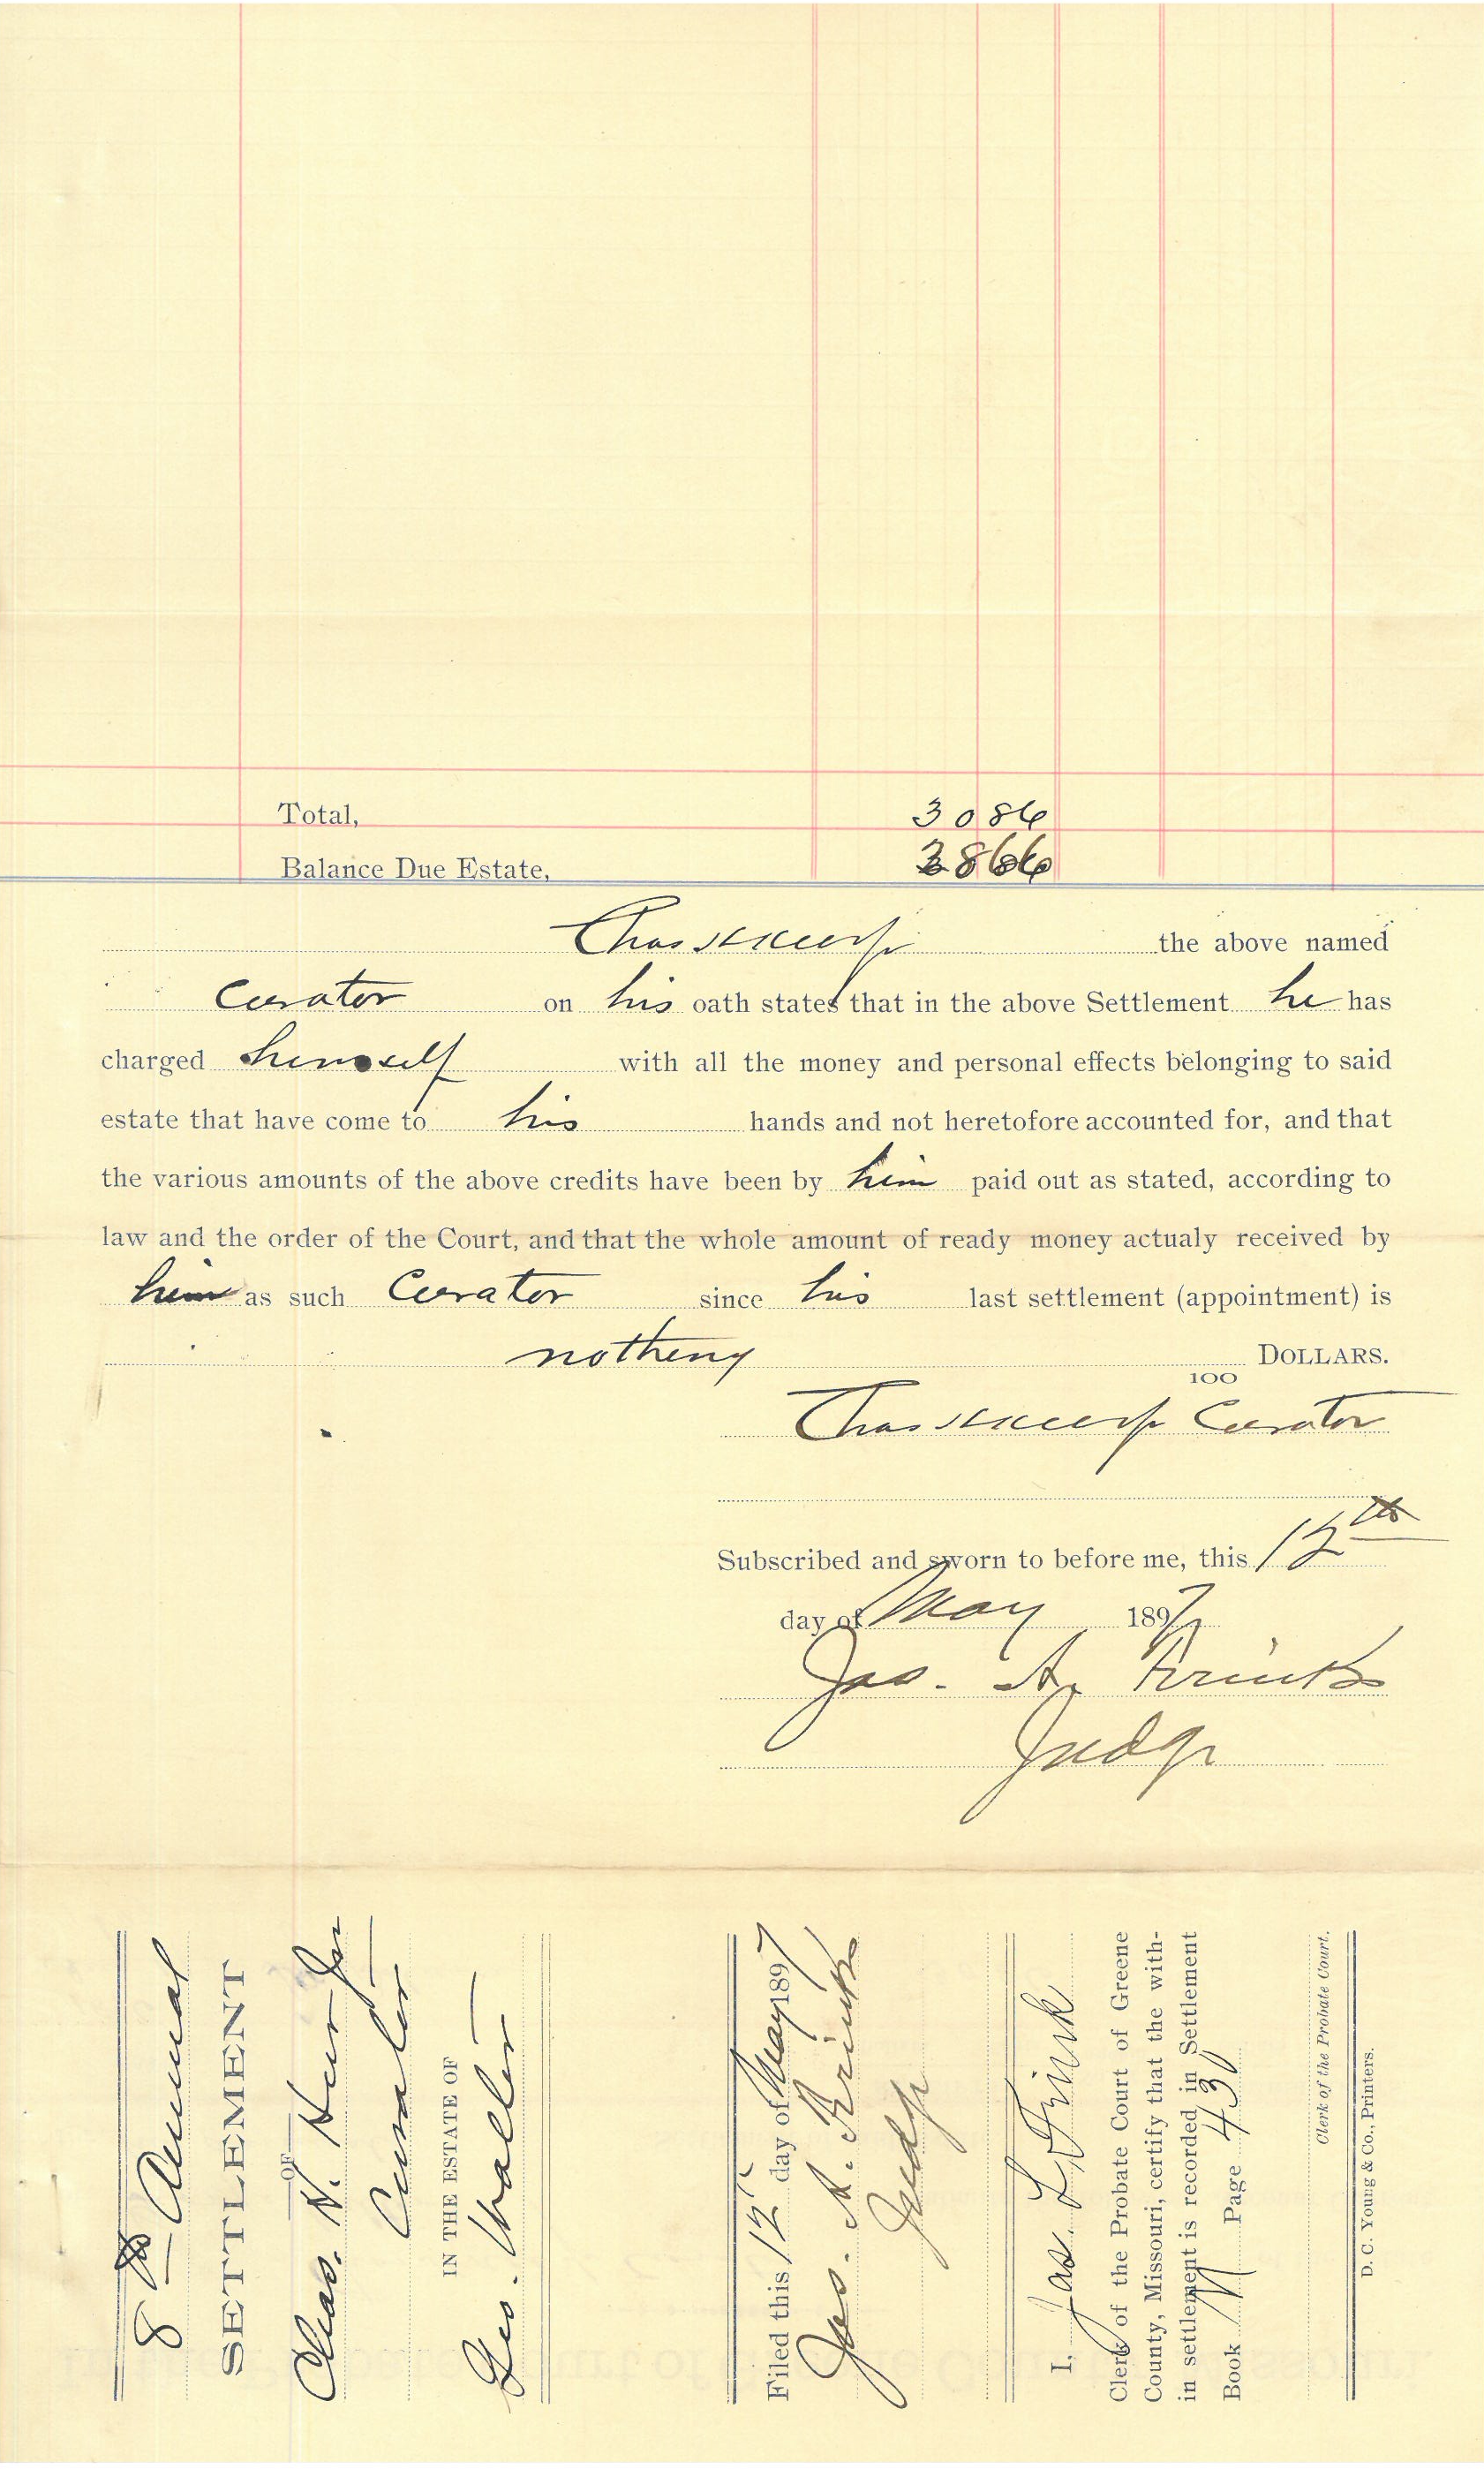 Total, 3086
Balance Due Estate, 2866
Chas the above named
Curator on his oath states that in the above Settlement he has
charged himself with all the money and personal effects belonging to said
estate that have come to his hands and not heretofore accounted for, and that
the various amounts of the above credits have been by him paid out as stated, according to
law and the order of the Court, and that the whole amount of ready money actualy received by
him as such Curator since his last settlement (appointment) is
nothing
100 DOLLARS.
Chas Curator
Subscribed and sworn to before me, this 12th
day of May 1897
Jas. A.
Judge
8th Annual
SETTLEMENT
OF
Chas. H.
Curator
IN THE ESTATE OF
Geo. Waller
Filed this 12 day of May 1897
Jas. A.
Judge
I, Jas.
Clerk of the Probate Court of Greene
County, Missouri, certify that the with-
in settlement is recorded in Settlement
Book Page
Clerk of the Probate Court.
D. C. Young & Co., Printers.